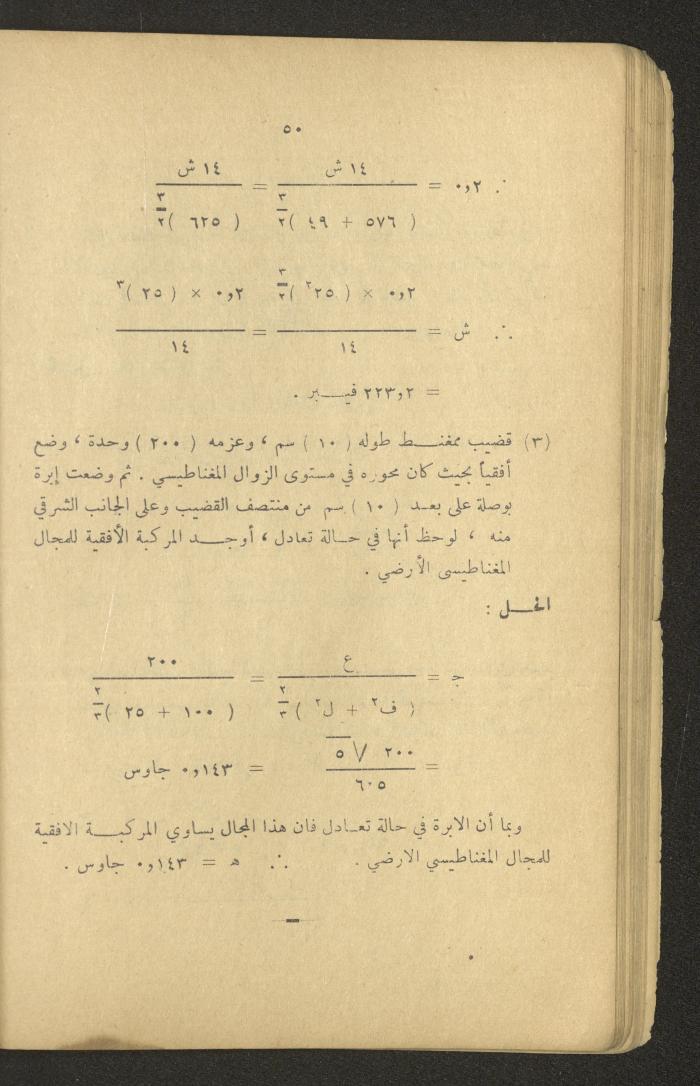 ٥٠
∴ ٠,٢ = ١٤ ش / ( ٥٧٦ + ٤٩ )^(٣/٢) = ١٤ ش / ( ٦٢٥ )^(٣/٢)
∴ ش = ٠,٢ × ( ٢٥^٢ )^(٣/٢) / ١٤ = ٠,٢ × ( ٢٥ )^٣ / ١٤
= ٢٢٣,٢ فيبر .
(٣) قضيب ممغنط طوله ( ١٠ ) سم ، وعزمه ( ٢٠٠ ) وحدة ، وضع
أفقياً بحيث كان محوره في مستوى الزوال المغناطيسي . ثم وضعت إبرة
بوصلة على بعد ( ١٠ ) سم من منتصف القضيب وعلى الجانب الشرقي
منه ، لوحظ أنها في حالة تعادل ، أوجد المركبة الأفقية للمجال
المغناطيسى الأرضي .
الحل :
ج = ع / ( ف^٢ + ل^٢ )^(٢/٣) = ٢٠٠ / ( ١٠٠ + ٢٥ )^(٢/٣)
= ٢٠٠ √٥ / ٦٠٥ = ٠,١٤٣ جاوس
وبما أن الابرة في حالة تعادل فان هذا المجال يساوي المركبة الافقية
للمجال المغناطيسي الارضي . ∴ ه = ٠,١٤٣ جاوس .